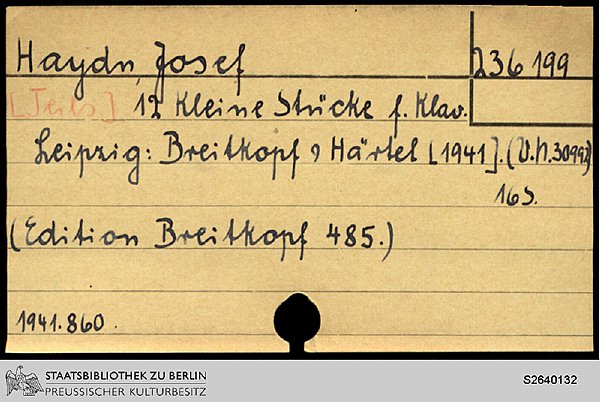 Haydn, Josef
236 199
[Teils] 12 Kleine Stücke f. Klav.
Leipzig: Breitkopf & Härtel [1941]. (V.N. 30992)
16 S.
(Edition Breitkopf 485.)
1941.860.
STAATSBIBLIOTHEK ZU BERLIN
PREUSSISCHER KULTURBESITZ
S2640132